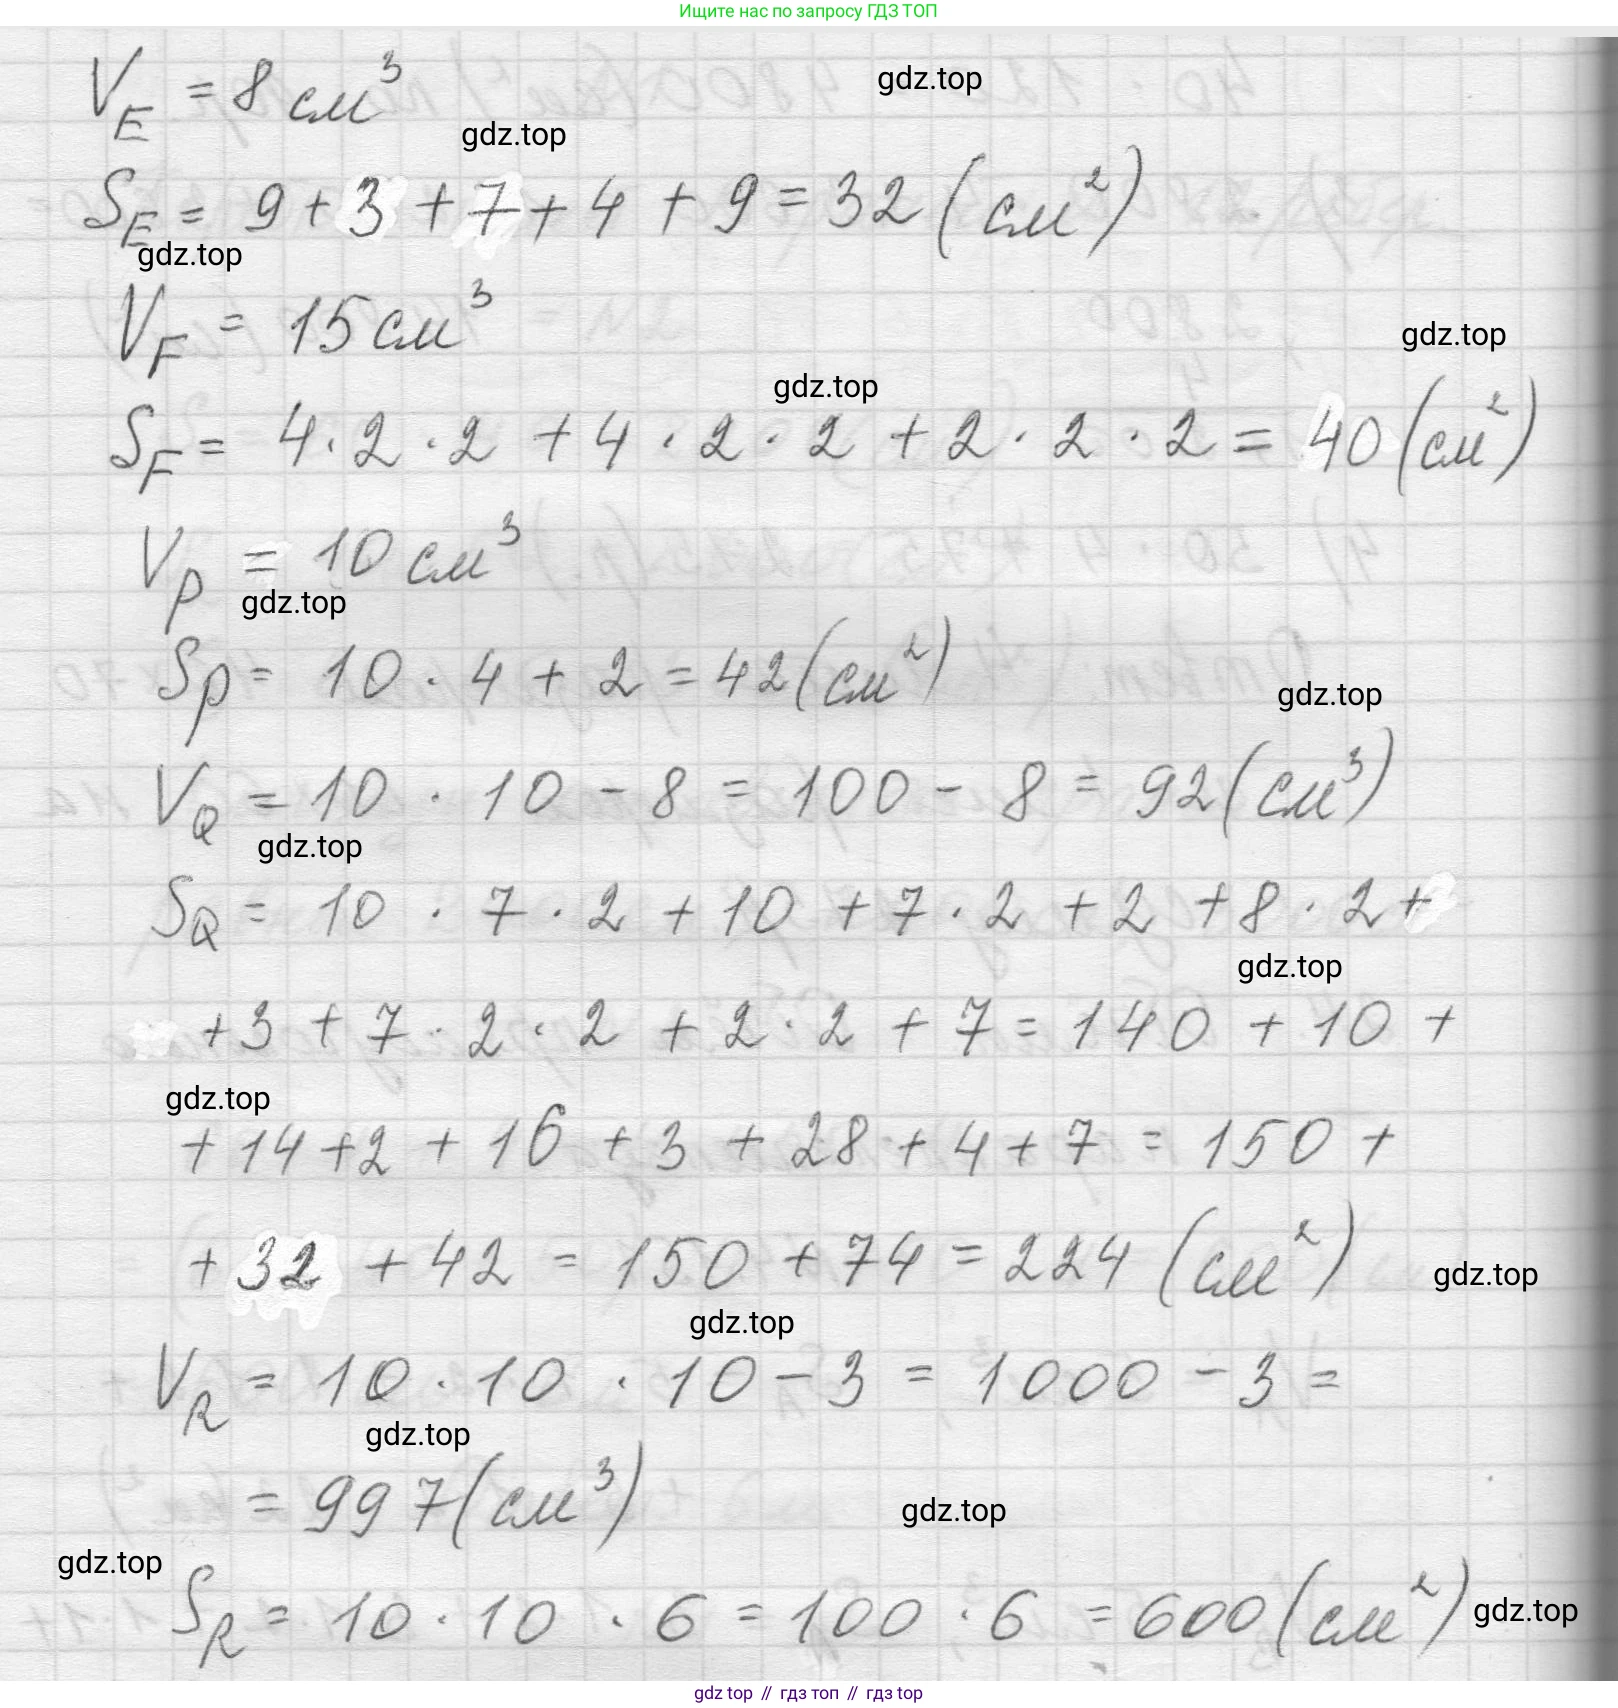 Ищите нас по запросу ГДЗ ТОП
V_E = 8 см³
gdz.top
gdz.top
S_E = 9 + 3 + 7 + 4 + 9 = 32 (см²)
gdz.top
V_F = 15 см³
gdz.top
gdz.top
S_F = 4 · 2 · 2 + 4 · 2 · 2 + 2 · 2 · 2 = 40 (см²)
V_P = 10 см³
gdz.top
S_P = 10 · 4 + 2 = 42 (см²)
gdz.top
V_Q = 10 · 10 - 8 = 100 - 8 = 92 (см³)
gdz.top
S_Q = 10 · 7 · 2 + 10 + 7 · 2 + 2 + 8 · 2 +
gdz.top
+ 3 + 7 · 2 · 2 + 2 · 2 + 7 = 140 + 10 +
gdz.top
+ 14 + 2 + 16 + 3 + 28 + 4 + 7 = 150 +
+ 32 + 42 = 150 + 74 = 224 (см²)
gdz.top
gdz.top
V_R = 10 · 10 · 10 - 3 = 1000 - 3 =
gdz.top
= 997 (см³)
gdz.top
gdz.top
S_R = 10 · 10 · 6 = 100 · 6 = 600 (см²)
gdz.top
gdz top // гдз топ // гдз top